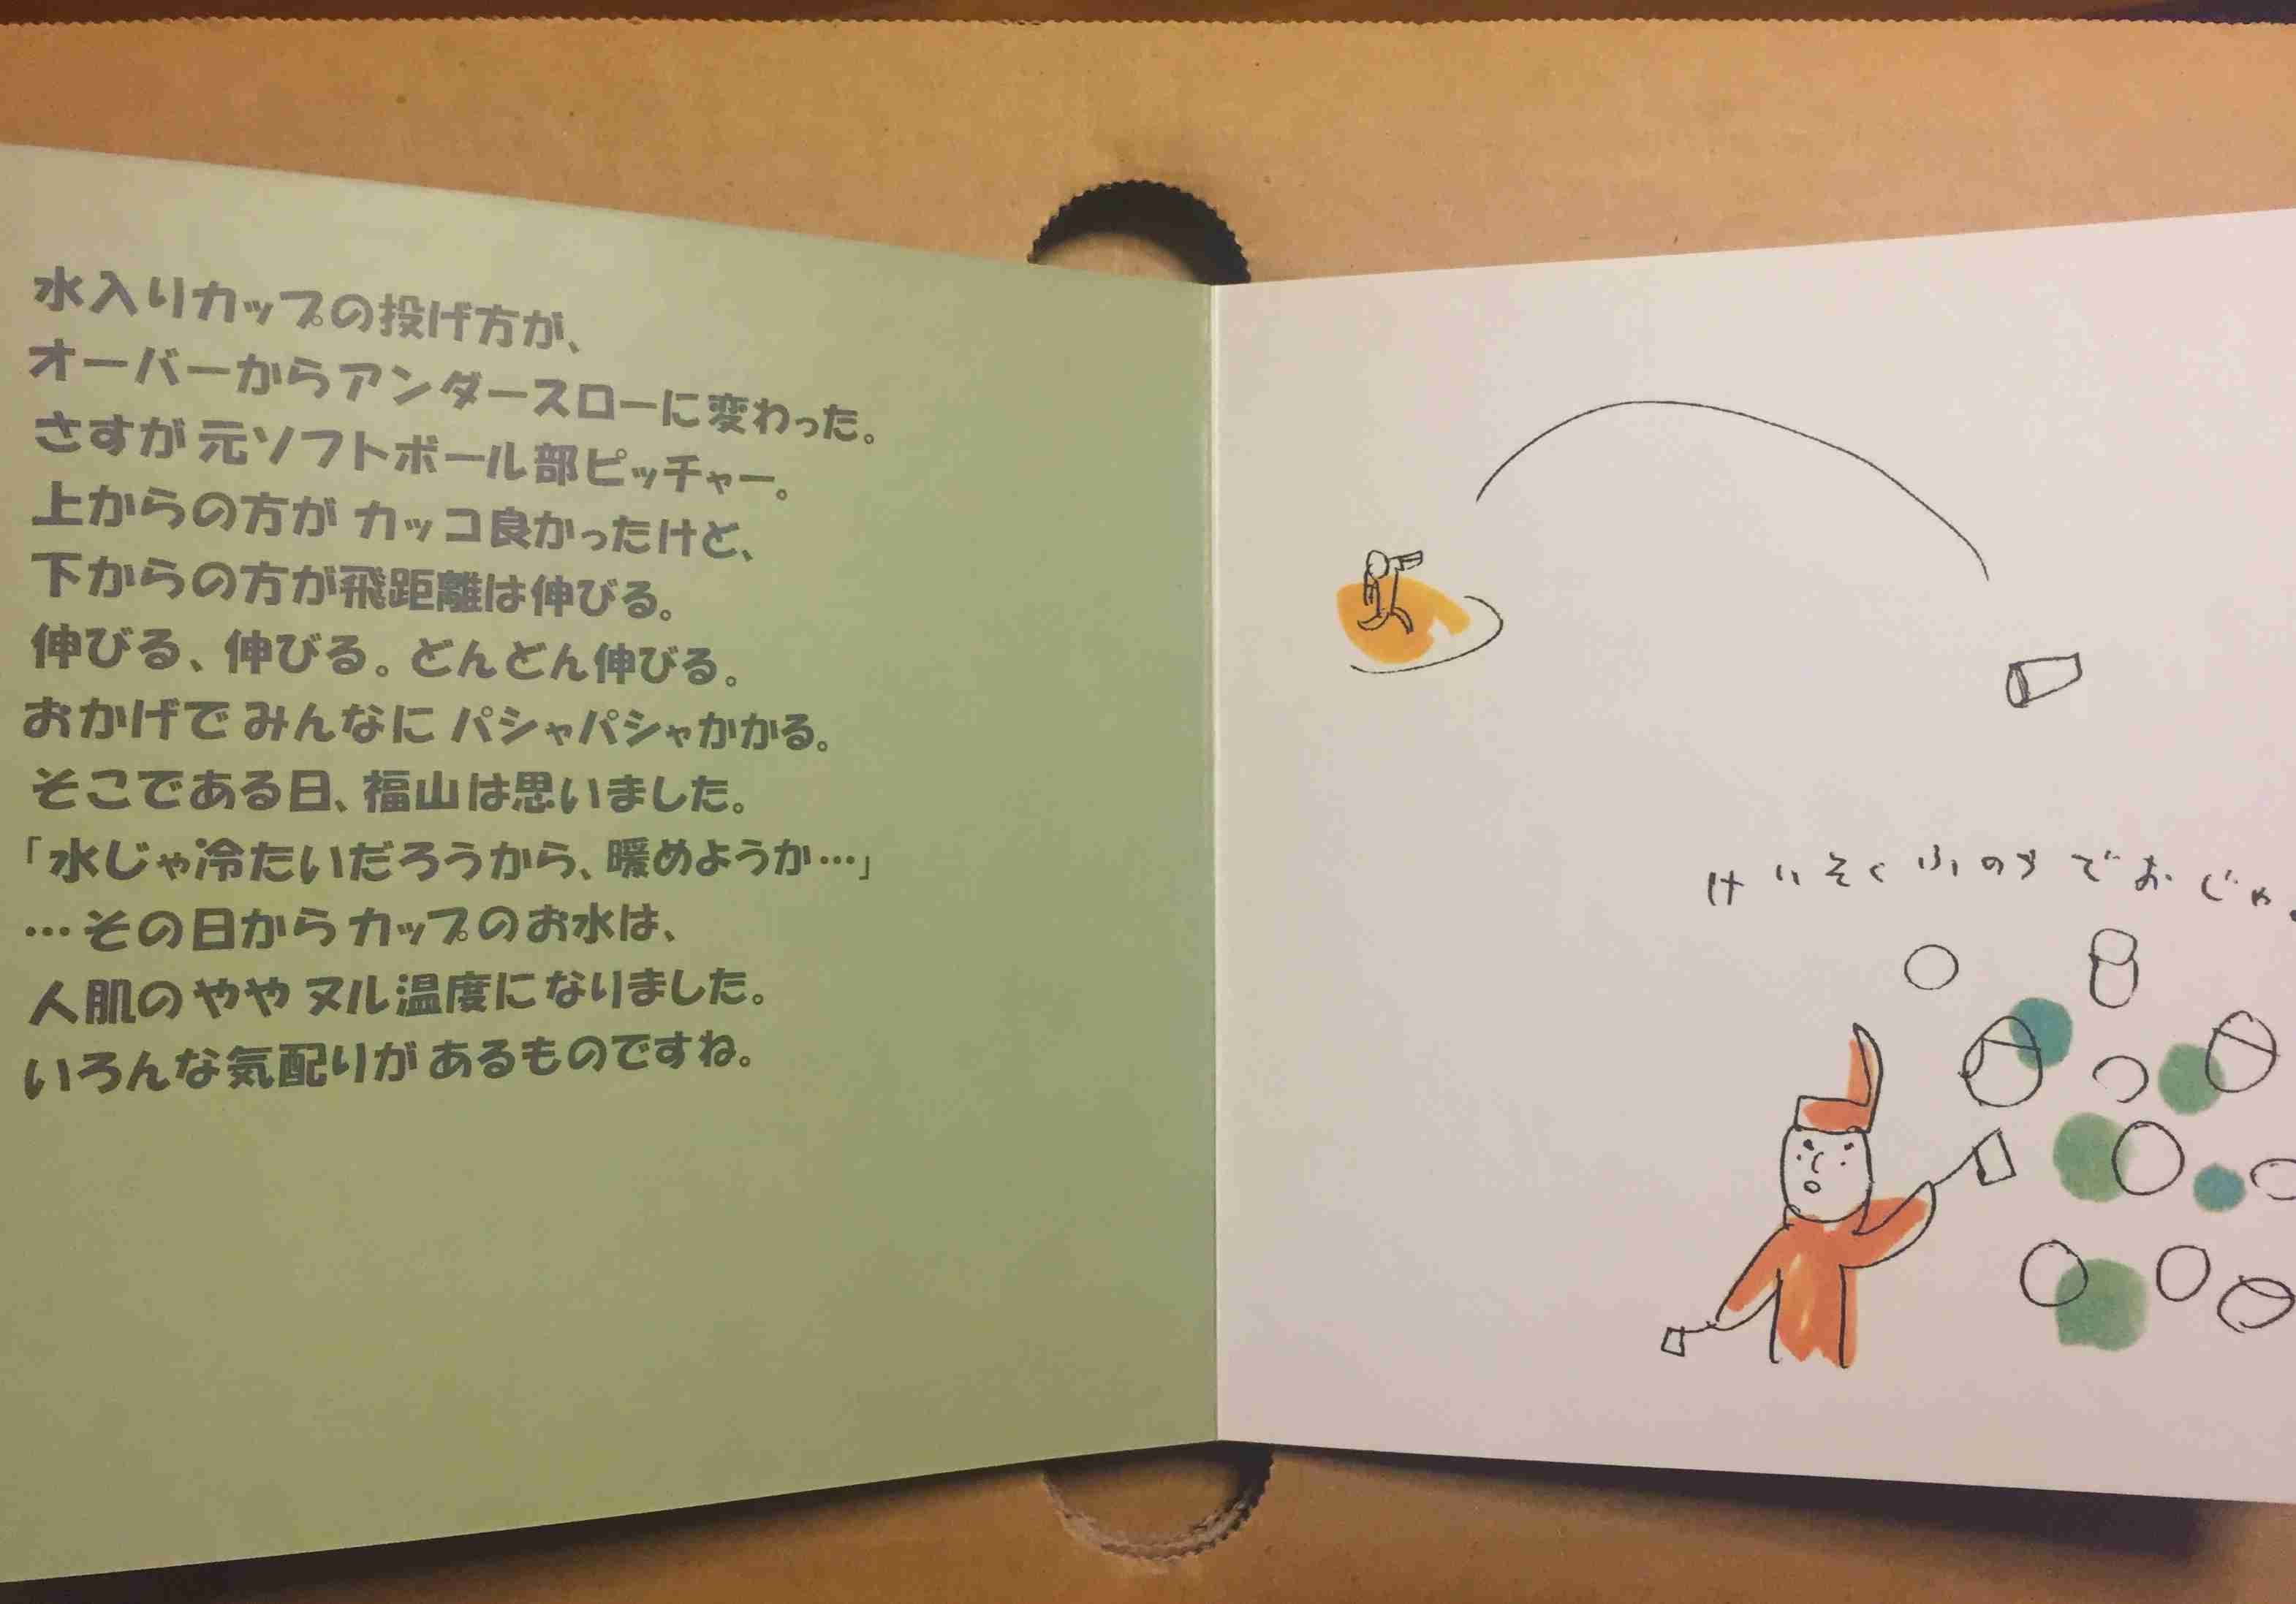 水入りカップの投げ方が、
オーバーからアンダースローに変わった。
さすが 元ソフトボール部ピッチャー。
上からの方が カッコ良かったけど、
下からの方が飛距離は伸びる。
伸びる、伸びる。どんどん伸びる。
おかげで みんなに パシャパシャかかる。
そこである日、福山は思いました。
「水じゃ冷たいだろうから、暖めようか…」
…その日から カップのお水は、
人肌の やや ヌル温度に なりました。
いろんな気配りが あるものですね。
けいそくふのうでおじゃる